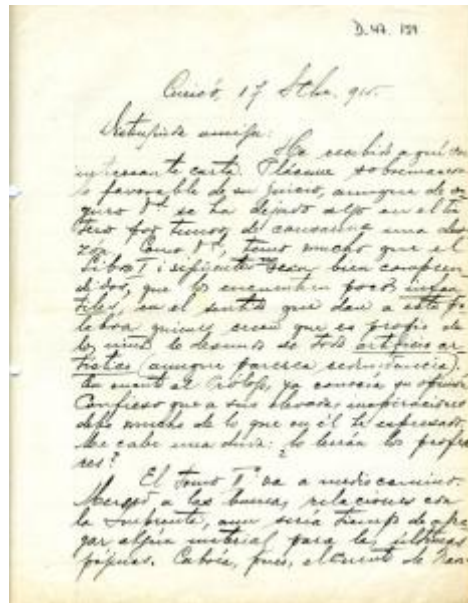 D. 47. 159
17 Stbre. 915.
Distinguida amiga:
He recibido aquí su
interesante carta. Pláceme sobremanera
lo favorable de su juicio, aunque de se
guro Vd. se ha dejado algo en el tin
tero por temor de causarme una desa
zón. Como Vd., temo mucho que el
Libro I i siguientes sean bien compren
didos, que los encuentren poco infan
tiles, en el sentido que dan a esta pa
labra quienes creen que es propio de
lo desnudo de todo artificio ar
tístico (aunque parezca redundancia).
En cuanto al Prólogo, ya conocía su opinión.
Confieso que a sus elevadas inspiraciones
debo mucho de lo que en él he expresado.
Me cabe una duda: ¿lo leerán los profeso
res?
El tomo II va a medio camino.
Merced a las buenas relaciones con
la Imprenta, aun sería tiempo de agre
gar algún material para las últimas
páginas. Cabría, pues, el cuento de